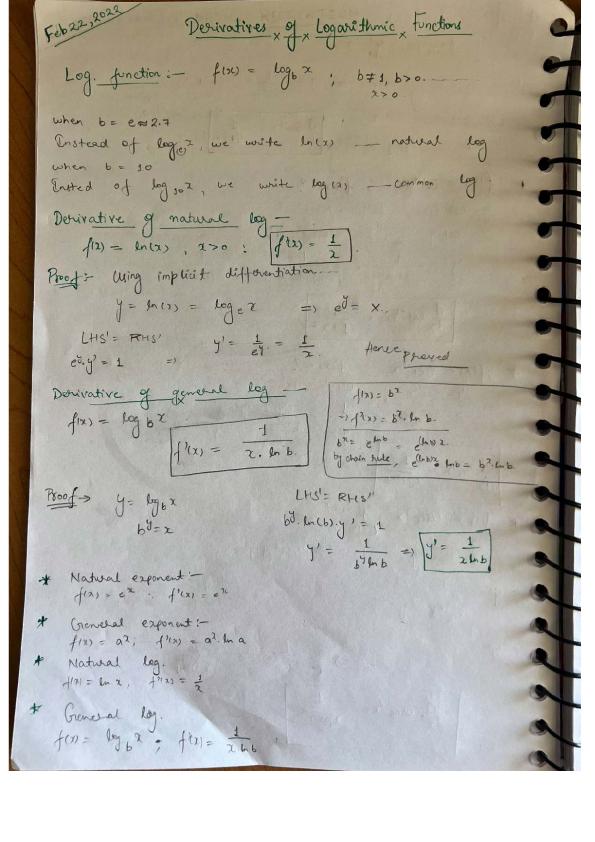 Feb 22, 2022
Derivatives of Logarithmic Functions
Log. function :- f(x) = log_b x ; b≠1, b>0.
x>0
when b = e ≈ 2.7
Instead of log_(e) x, we write ln(x) — natural log
when b = 10
Insted of log_10 x, we write log(x) — common log
Derivative of natural log —
f(x) = ln(x) , x>0 : f'(x) = 1/x .
Proof :- Using implicit differentiation...
y = ln(x) = log_e x => e^y = x..
LHS' = RHS'
e^y.y' = 1 => y' = 1/e^y = 1/x. Hence proved
Derivative of general log —
f(x) = log_b x.
f'(x) = 1/(x. ln b)
f(x) = b^x
-> f'(x) = b^x. ln b.
b^x = e^(ln b^x) = e^((ln b) x).
by chain rule, e^((ln b)x). ln b = b^x. ln b.
Proof -> y = log_b x
b^y = x
LHS' = RHS'
b^y. ln(b). y' = 1
y' = 1/(b^y ln b) => y' = 1/(x ln b)
* Natural exponent :-
f(x) = e^x . f'(x) = e^x
* General exponent :-
f(x) = a^x, f'(x) = a^x. ln a
* Natural log.
f(x) = ln x, f'(x) = 1/x
* General log.
f(x) = log_b x ; f'(x) = 1/(x ln b)